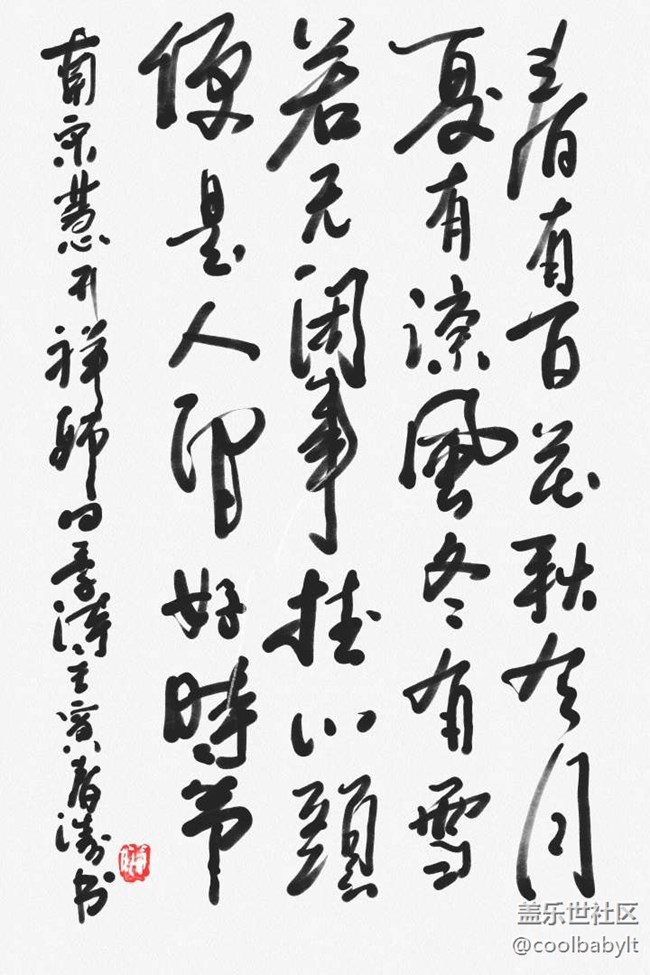 春有百花秋有月
夏有涼風冬有雪
若无闲事挂心頭
便是人间好時节
南宋慧开禅师四季诗壬寅春涛书
盖乐世社区
@coolbabylt